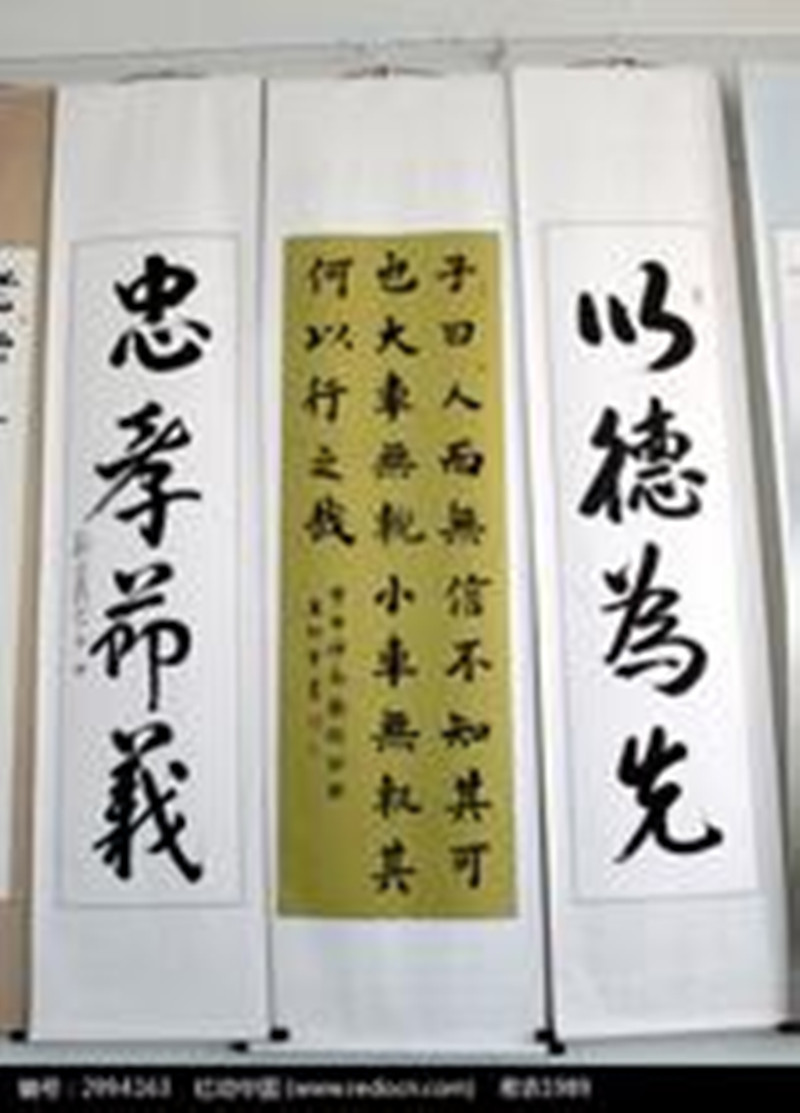 以德為先
子曰人而無信不知其可
也大車無輗小車無軏其
何以行之哉
忠孝節義
编号：2994163 红动中国 (www.redocn.com)